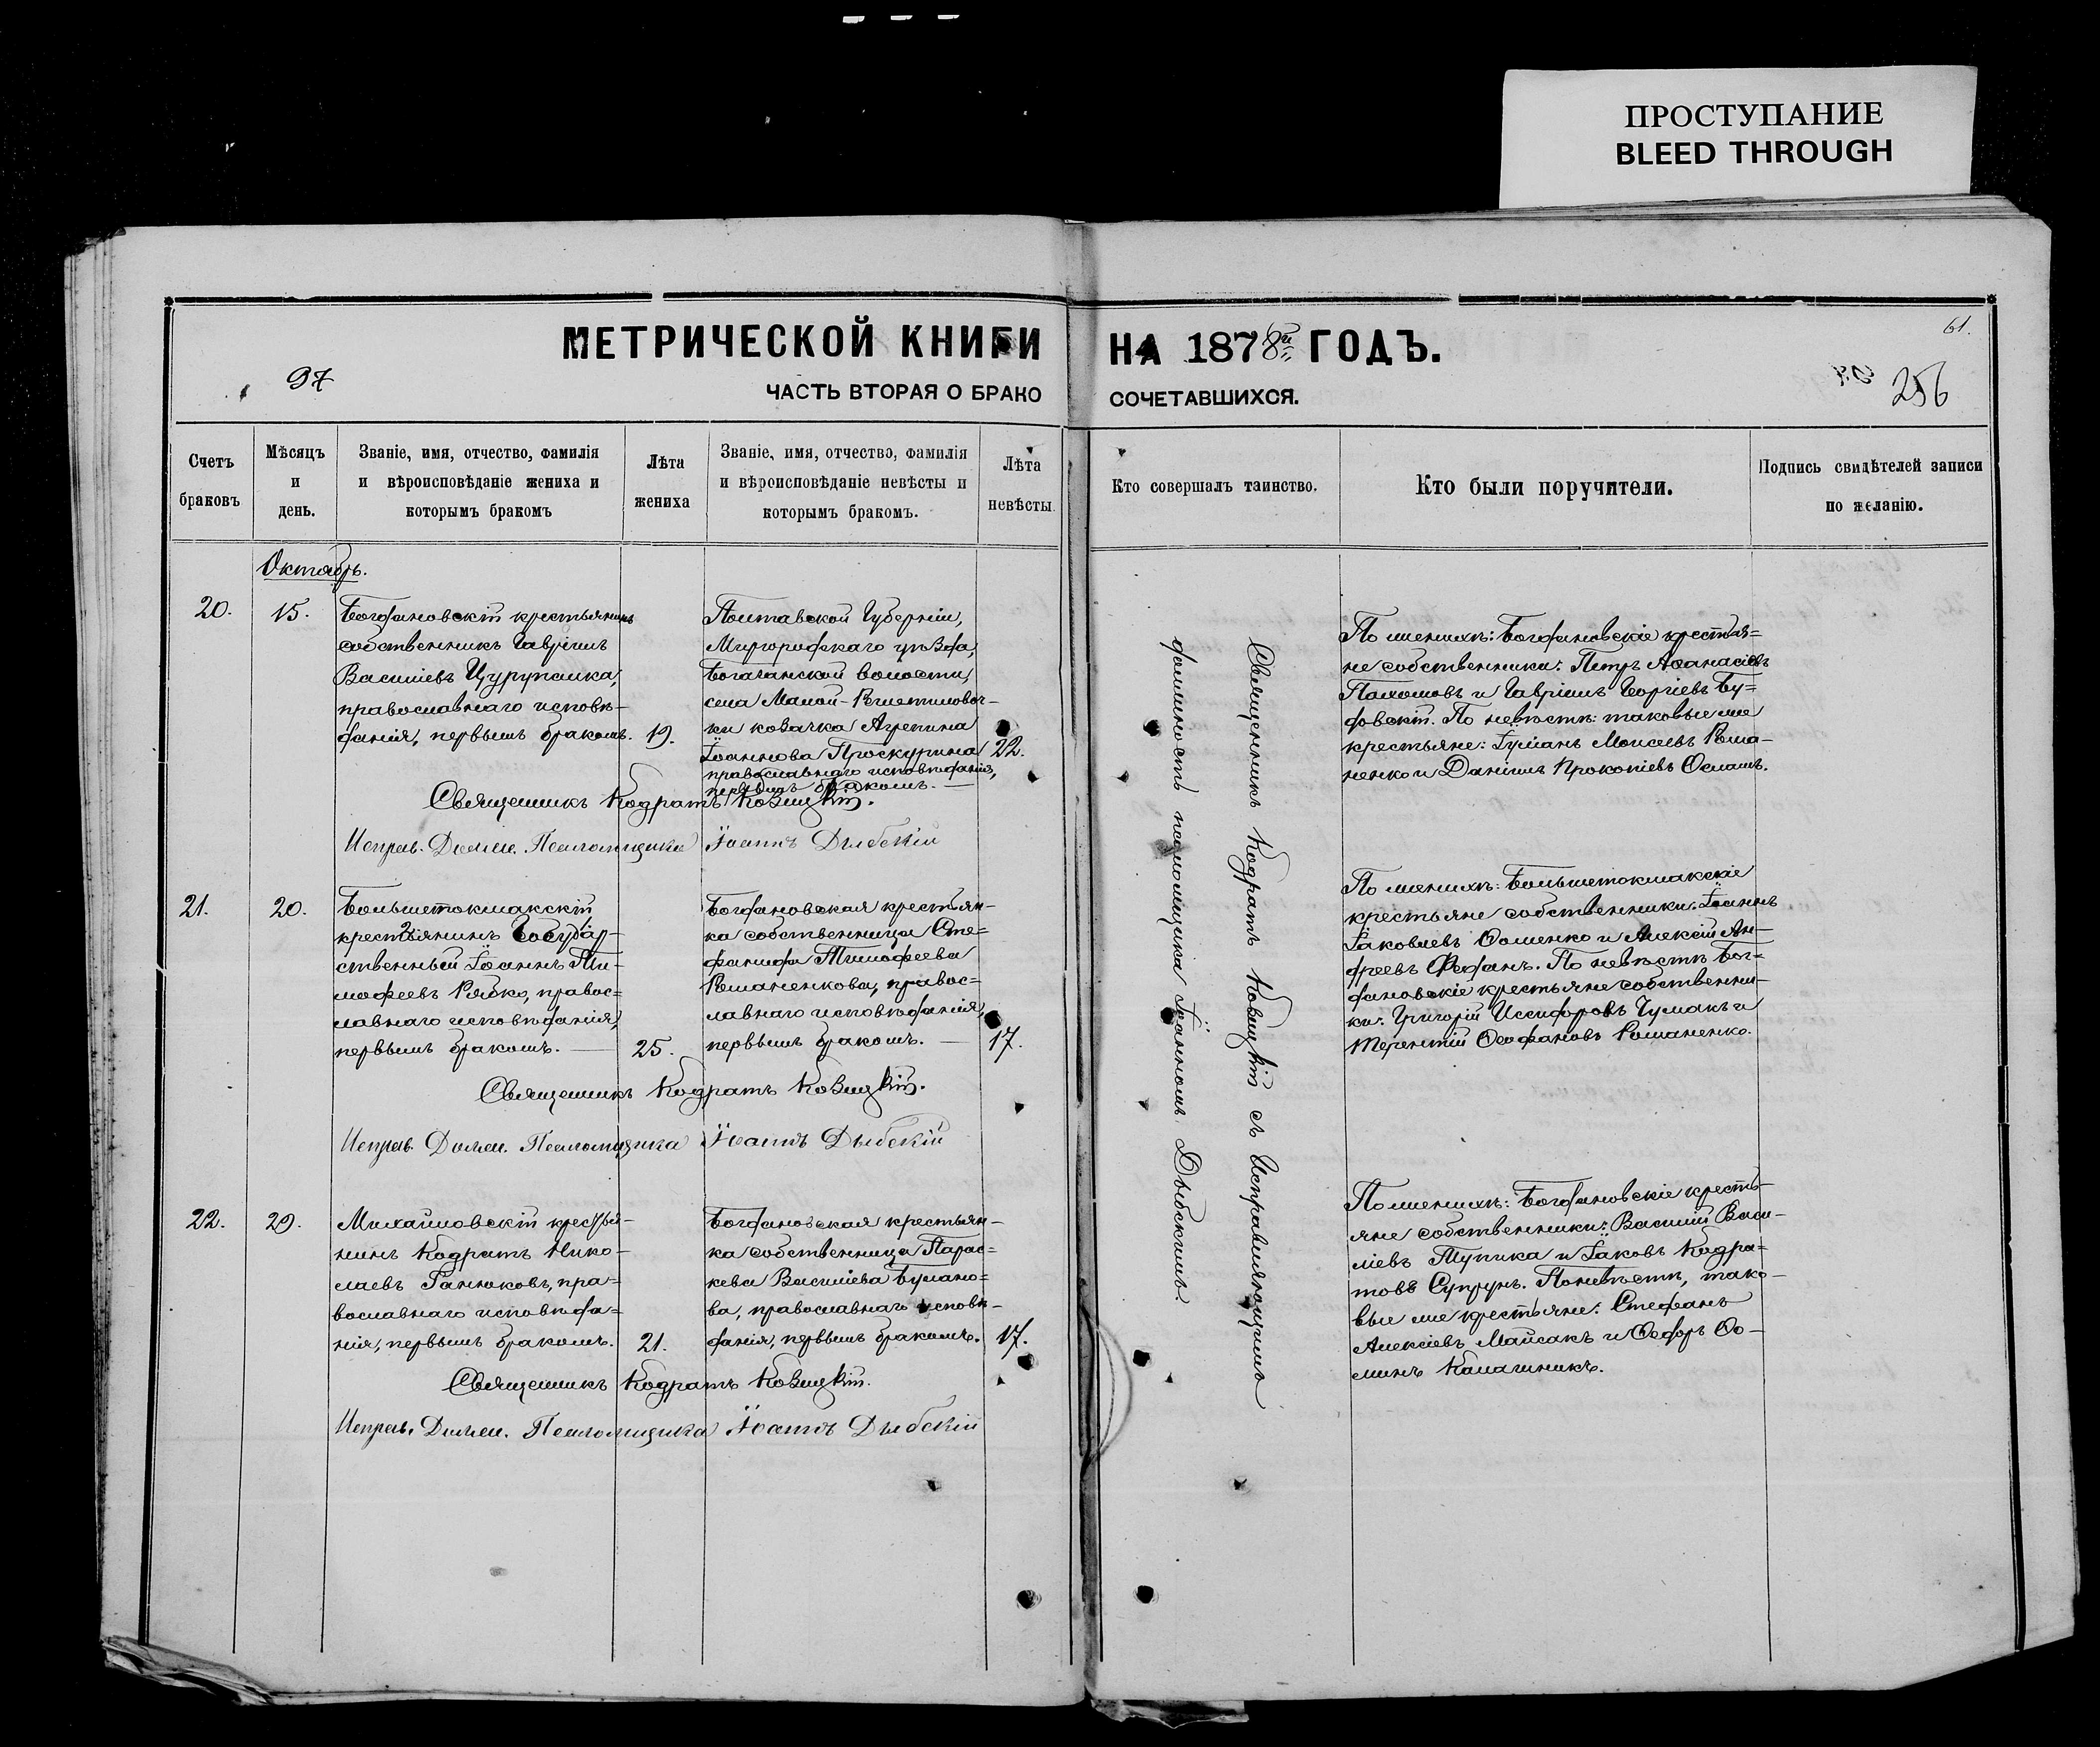 ПРОСТУПАНИЕ
BLEED THROUGH
МЕТРИЧЕСКОЙ КНИГИ НА 1878й ГОДЪ.
61.
97
ЧАСТЬ ВТОРАЯ О БРАКОСОЧЕТАВШИХСЯ.
256
Счетъ
браковъ
Мѣсяцъ
и
день.
Званіе, имя, отчество, фамилія
и вѣроисповѣданіе жениха и
которымъ бракомъ
Лѣта
жениха
Званіе, имя, отчество, фамилія
и вѣроисповѣданіе невѣсты и
которымъ бракомъ.
Лѣта
невѣсты
Кто совершалъ таинство.
Кто были поручители.
Подпись свидѣтелей записи
по желанію.
Октябрь.
20.
15.
Богдановскій крестьянинъ
собственникъ Гавріилъ
Василіевъ Цурупалка,
православнаго исповѣ-
данія, первымъ бракомъ.
19.
Полтавской Губерніи,
Миргородскаго уѣзда,
Богачанской волости,
села Малой-
ки козачка Агрепина
Іоаннова Проскурина
православнаго исповѣданія,
первымъ бракомъ.
22.
По женихѣ: Богдановскіе крестья=
не собственники: Петръ Аѳанасіевъ
Пахомовъ и Гавріилъ Георгіевъ Бу=
довскій. По невѣстѣ: таковые же
крестьяне: Іуліанъ Моисеевъ Рома-
ненко и Даніилъ Прокопіевъ
Священникъ Кодратъ
Исправ. Должн. Псаломщика Іоаннъ Дыбскій
21.
20.
Большетокмакскій
крестьянинъ Государ-
ственный Іоаннъ Ти-
мофеевъ Рябко, правос=
лавнаго исповѣданія,
первымъ бракомъ.
25.
Богдановская крестьян-
ка собственница Сте=
фанида Тимофеева
Романенкова, правос=
лавнаго исповѣданія,
первымъ бракомъ.
17.
По женихѣ: Большетокмакскіе
крестьяне собственники: Іоаннъ
Іаковлевъ Ѳоменко и Алексій Ан-
дреевъ Феданъ. По невѣстѣ Бог-
дановскіе крестьяне собственни-
ки: Григорій Исидоровъ Чумакъ и
Терентій Ѳеофановъ Романенко.
Священникъ Кодратъ
Исправ. Должн. Псаломщика Іоаннъ Дыбскій
22.
29.
Михайловскій крестья-
нинъ Кодратъ Нико-
лаевъ Ганюковъ, пра=
вославнаго исповѣда=
нія, первымъ бракомъ.
21.
Богдановская крестьян-
ка собственница Парас=
кева Василіева Булано=
ва, православнаго исповѣ-
данія, первымъ бракомъ.
17.
По женихѣ: Богдановскіе кресть-
яне собственники: Василій Васи-
ліевъ Тупика и Іаковъ Кодра=
товъ Супрунъ. По невѣстѣ, тако-
вые же крестьяне: Стефанъ
Алексіевъ Майсакъ и Ѳедоръ Ѳо-
минъ Калашникъ.
Священникъ Кодратъ
Исправ. Должн. Псаломщика Іоаннъ Дыбскій
Священникъ Кодратъ съ Исправляющимъ
должность псаломщика Іоанномъ Дыбскимъ.